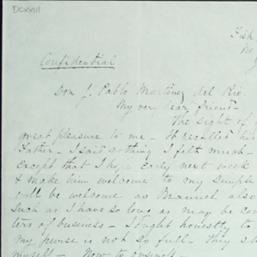 Fish
No
Confidential
Don J. Pablo Martinez del Rio.
My very dear friend -
The sight of
great pleasure to me - It recalled the
Father - I said nothing I felt much -
except that I hope early next week
& make him welcome to my simple
will be welcome as also
such as I have so long as may be
ters of business - I ought honestly to
my purse is not so full - They
myself - Now to